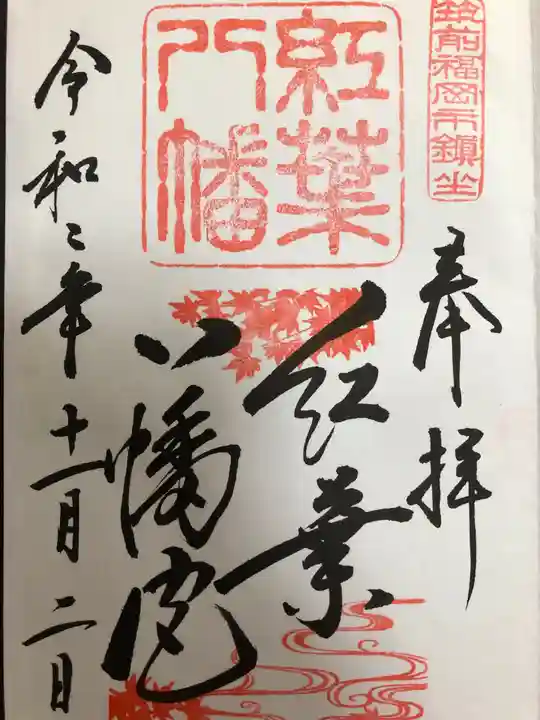 筑前福岡市鎮坐
奉拝
紅葉
八幡
紅葉
八幡宮
令和二年十一月二日